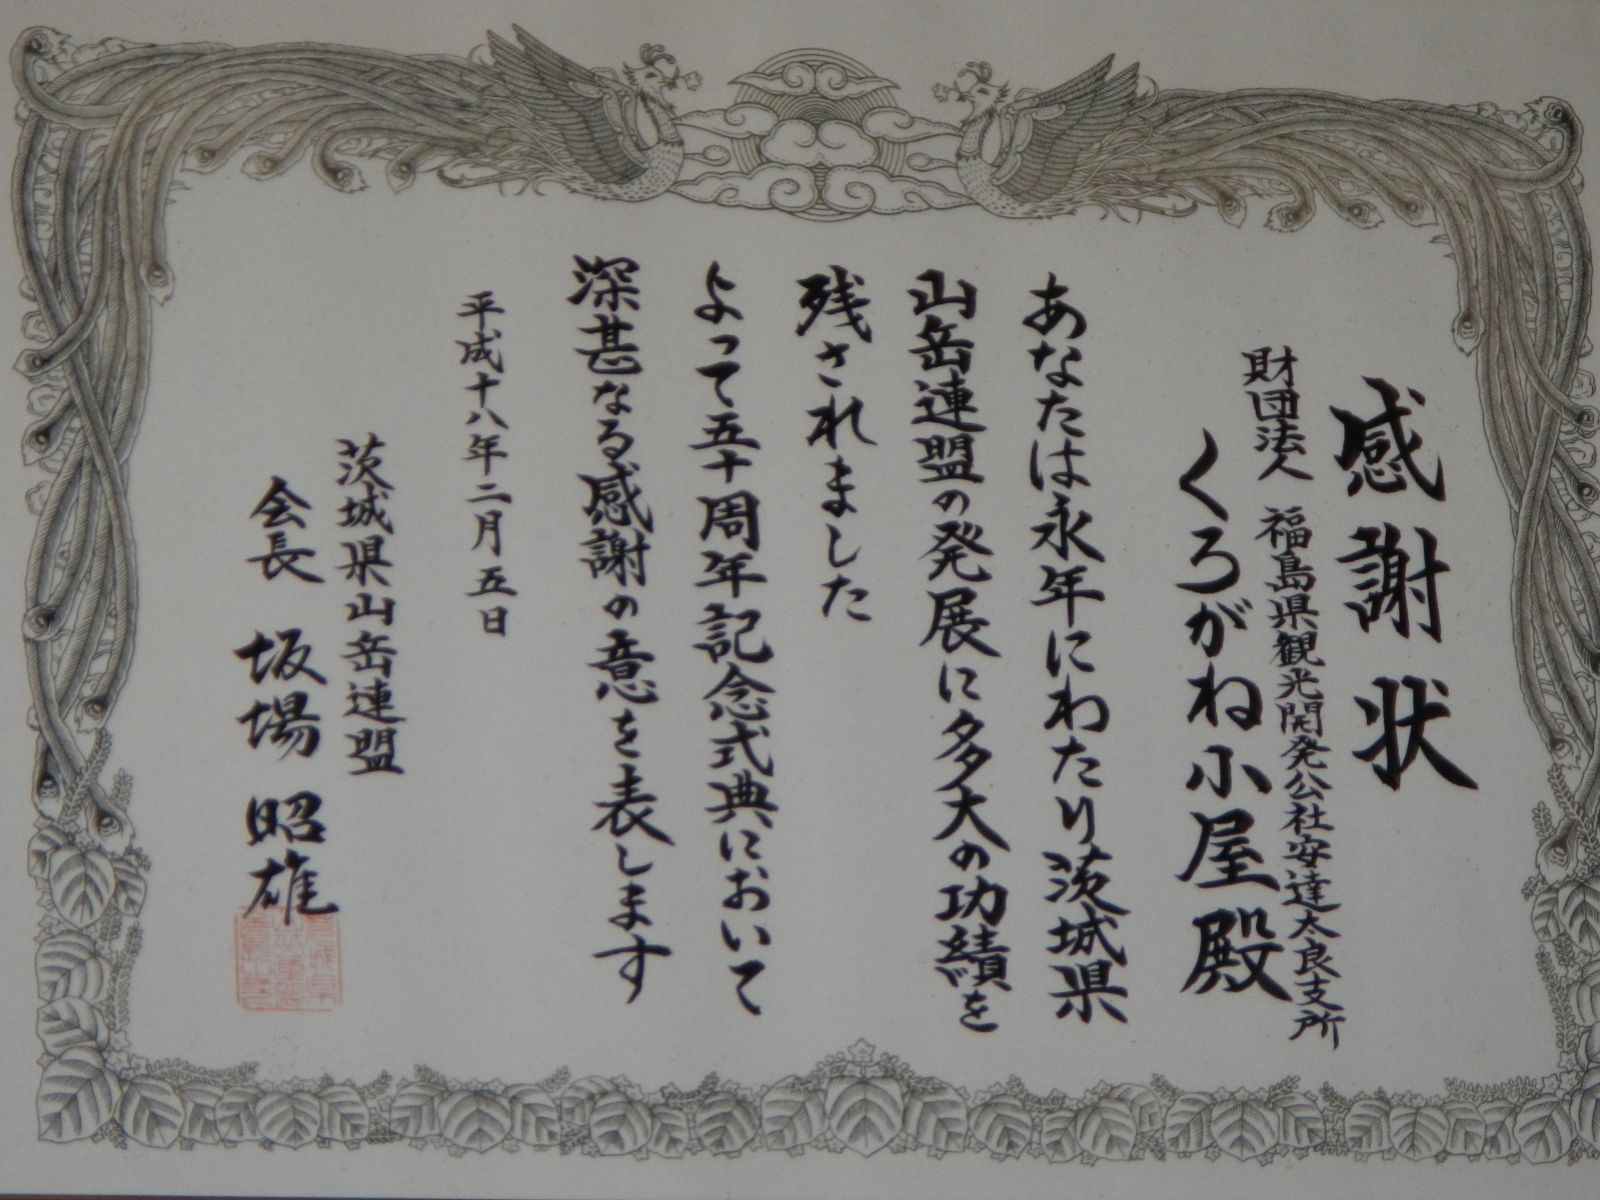 感謝状
財団法人 福島県観光開発公社安達太良支所
くろがね小屋殿
あなたは永年にわたり茨城県
山岳連盟の発展に多大の功績を
残されました
よって五十周年記念式典において
深甚なる感謝の意を表します
平成十八年二月五日
茨城県山岳連盟
会長 坂場 昭雄